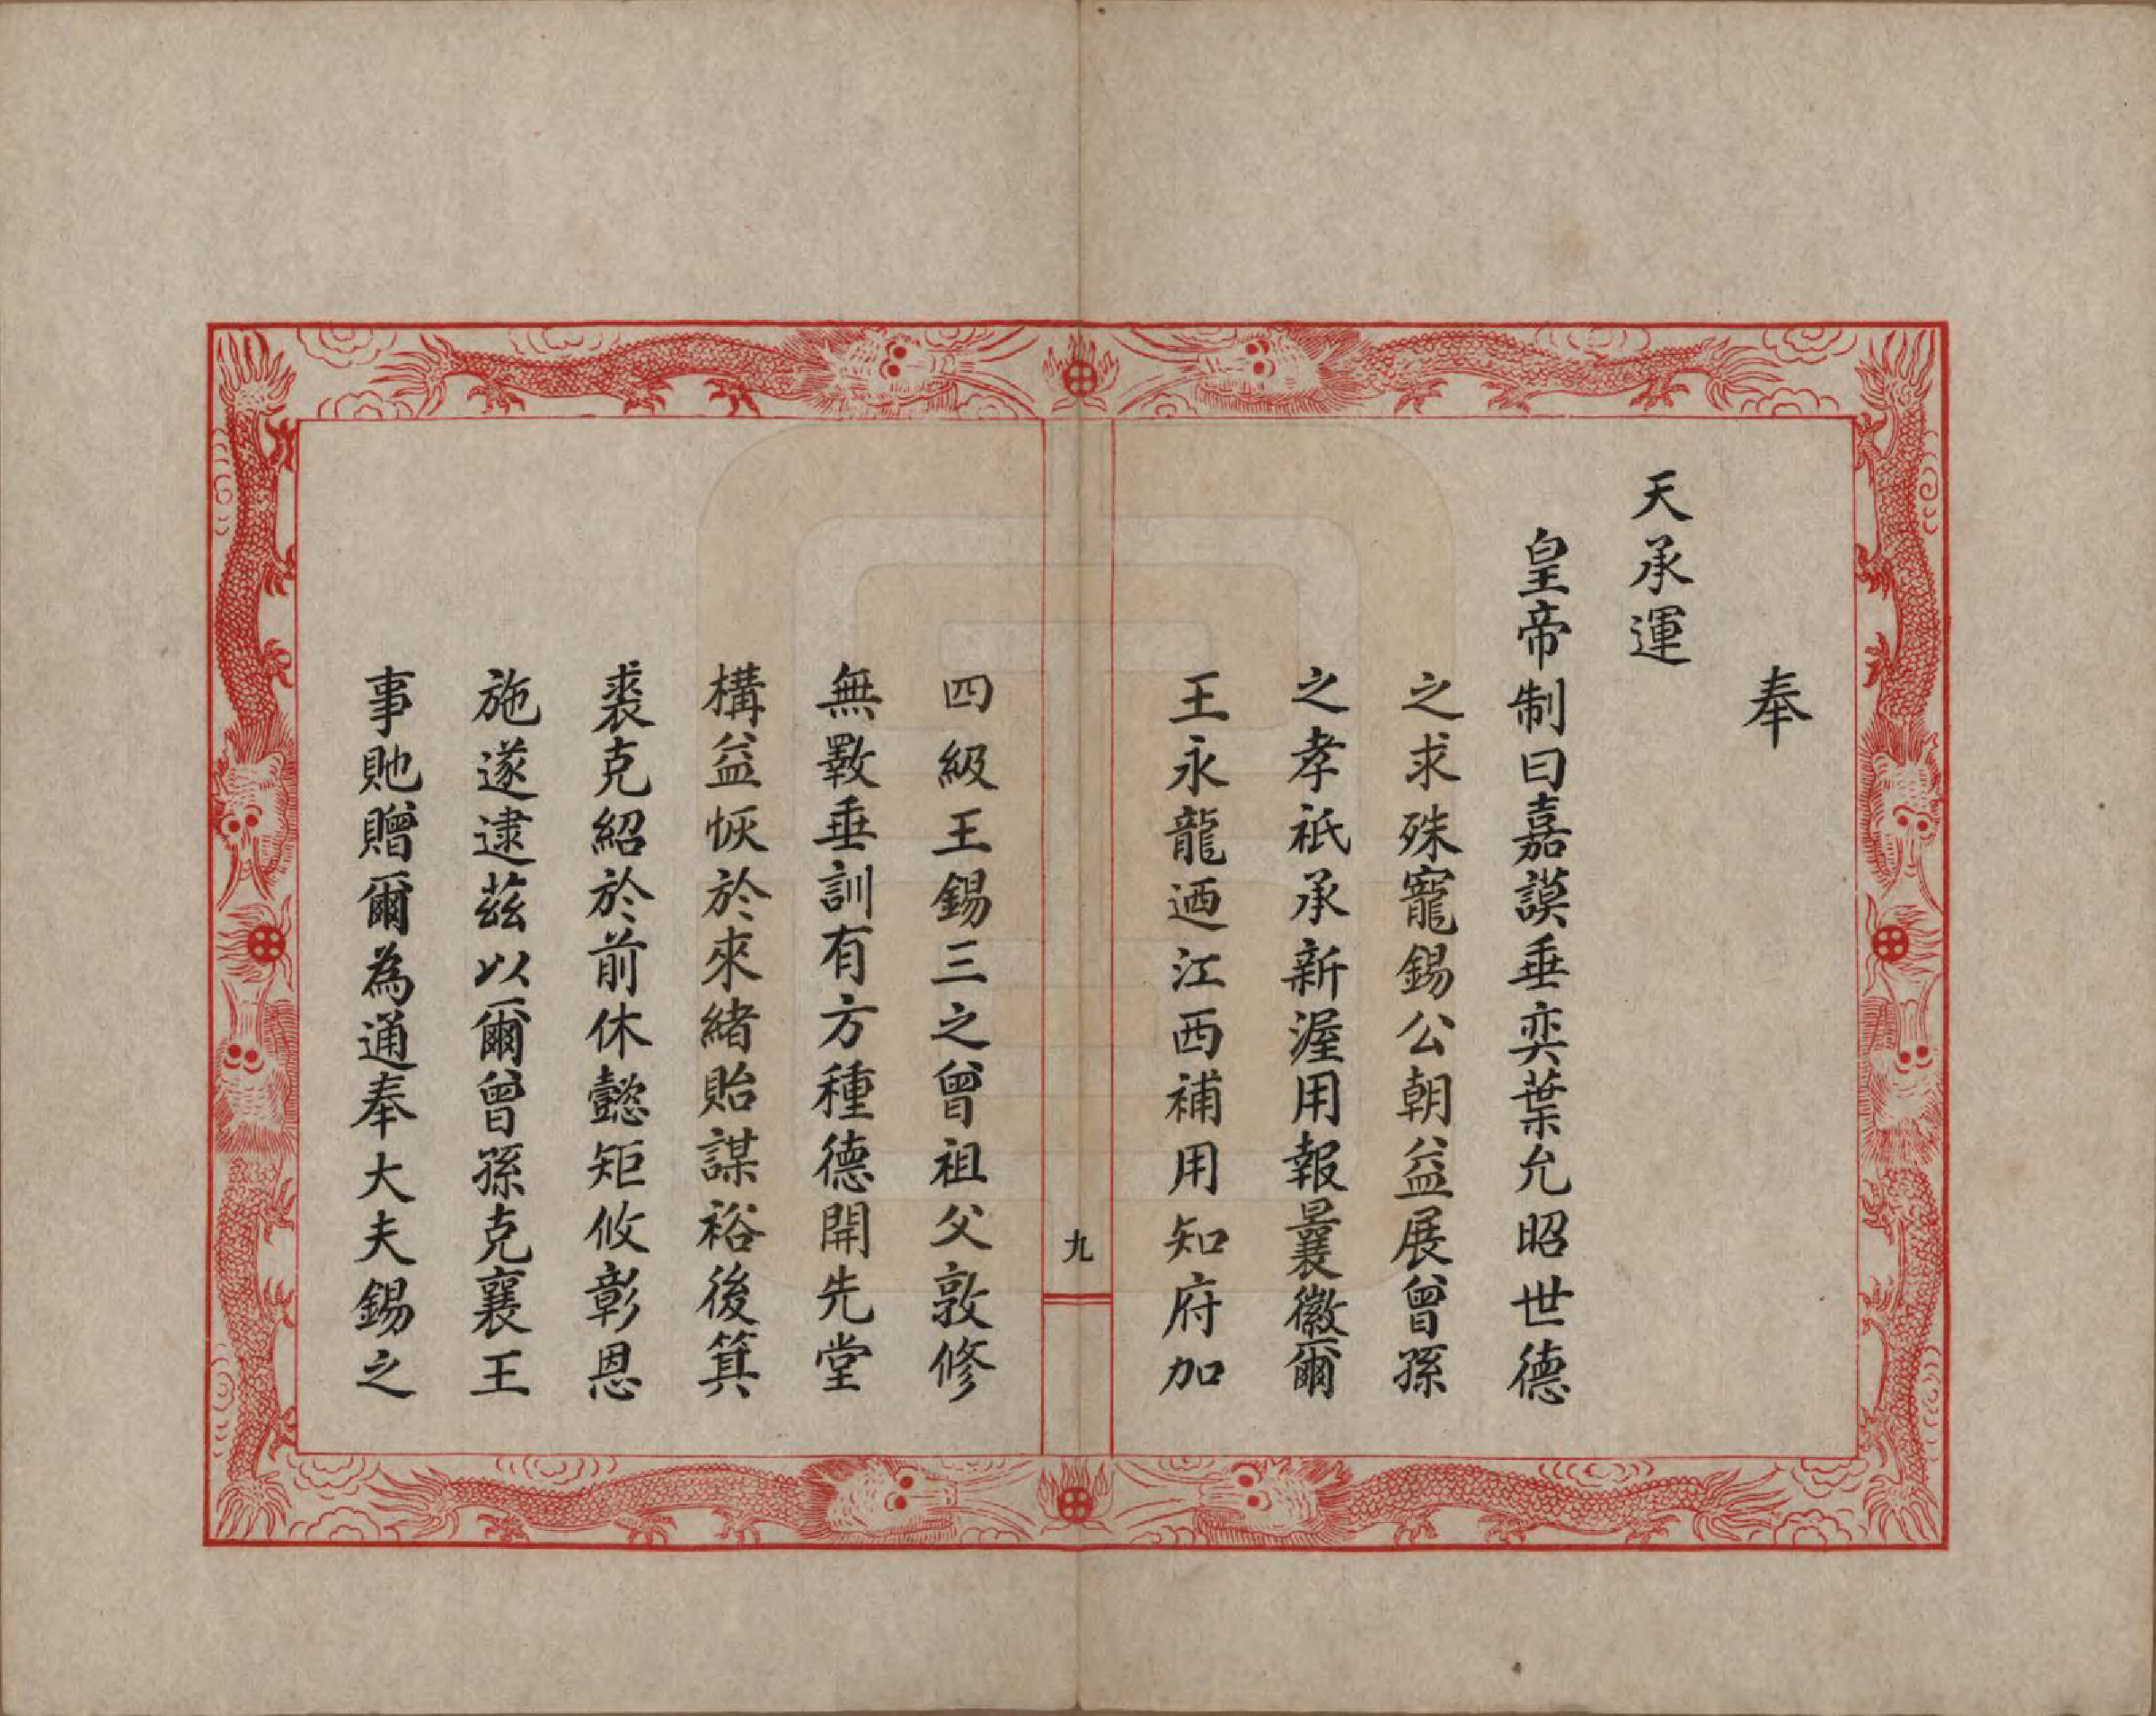 奉
天承運
皇帝制曰嘉謨垂奕葉允昭世德
之求殊寵錫公朝益展曾孫
之孝祇承新渥用報曩徽爾
王永龍迺江西補用知府加
九
四級王錫三之曾祖父敦修
無斁垂訓有方種德開先堂
構益恢於來緒貽謀裕後箕
裘克紹於前休懿矩攸彰恩
施遂逮茲以爾曾孫克襄王
事貤贈爾為通奉大夫錫之